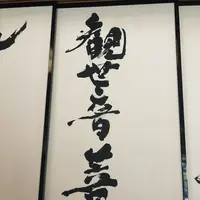 観世音菩